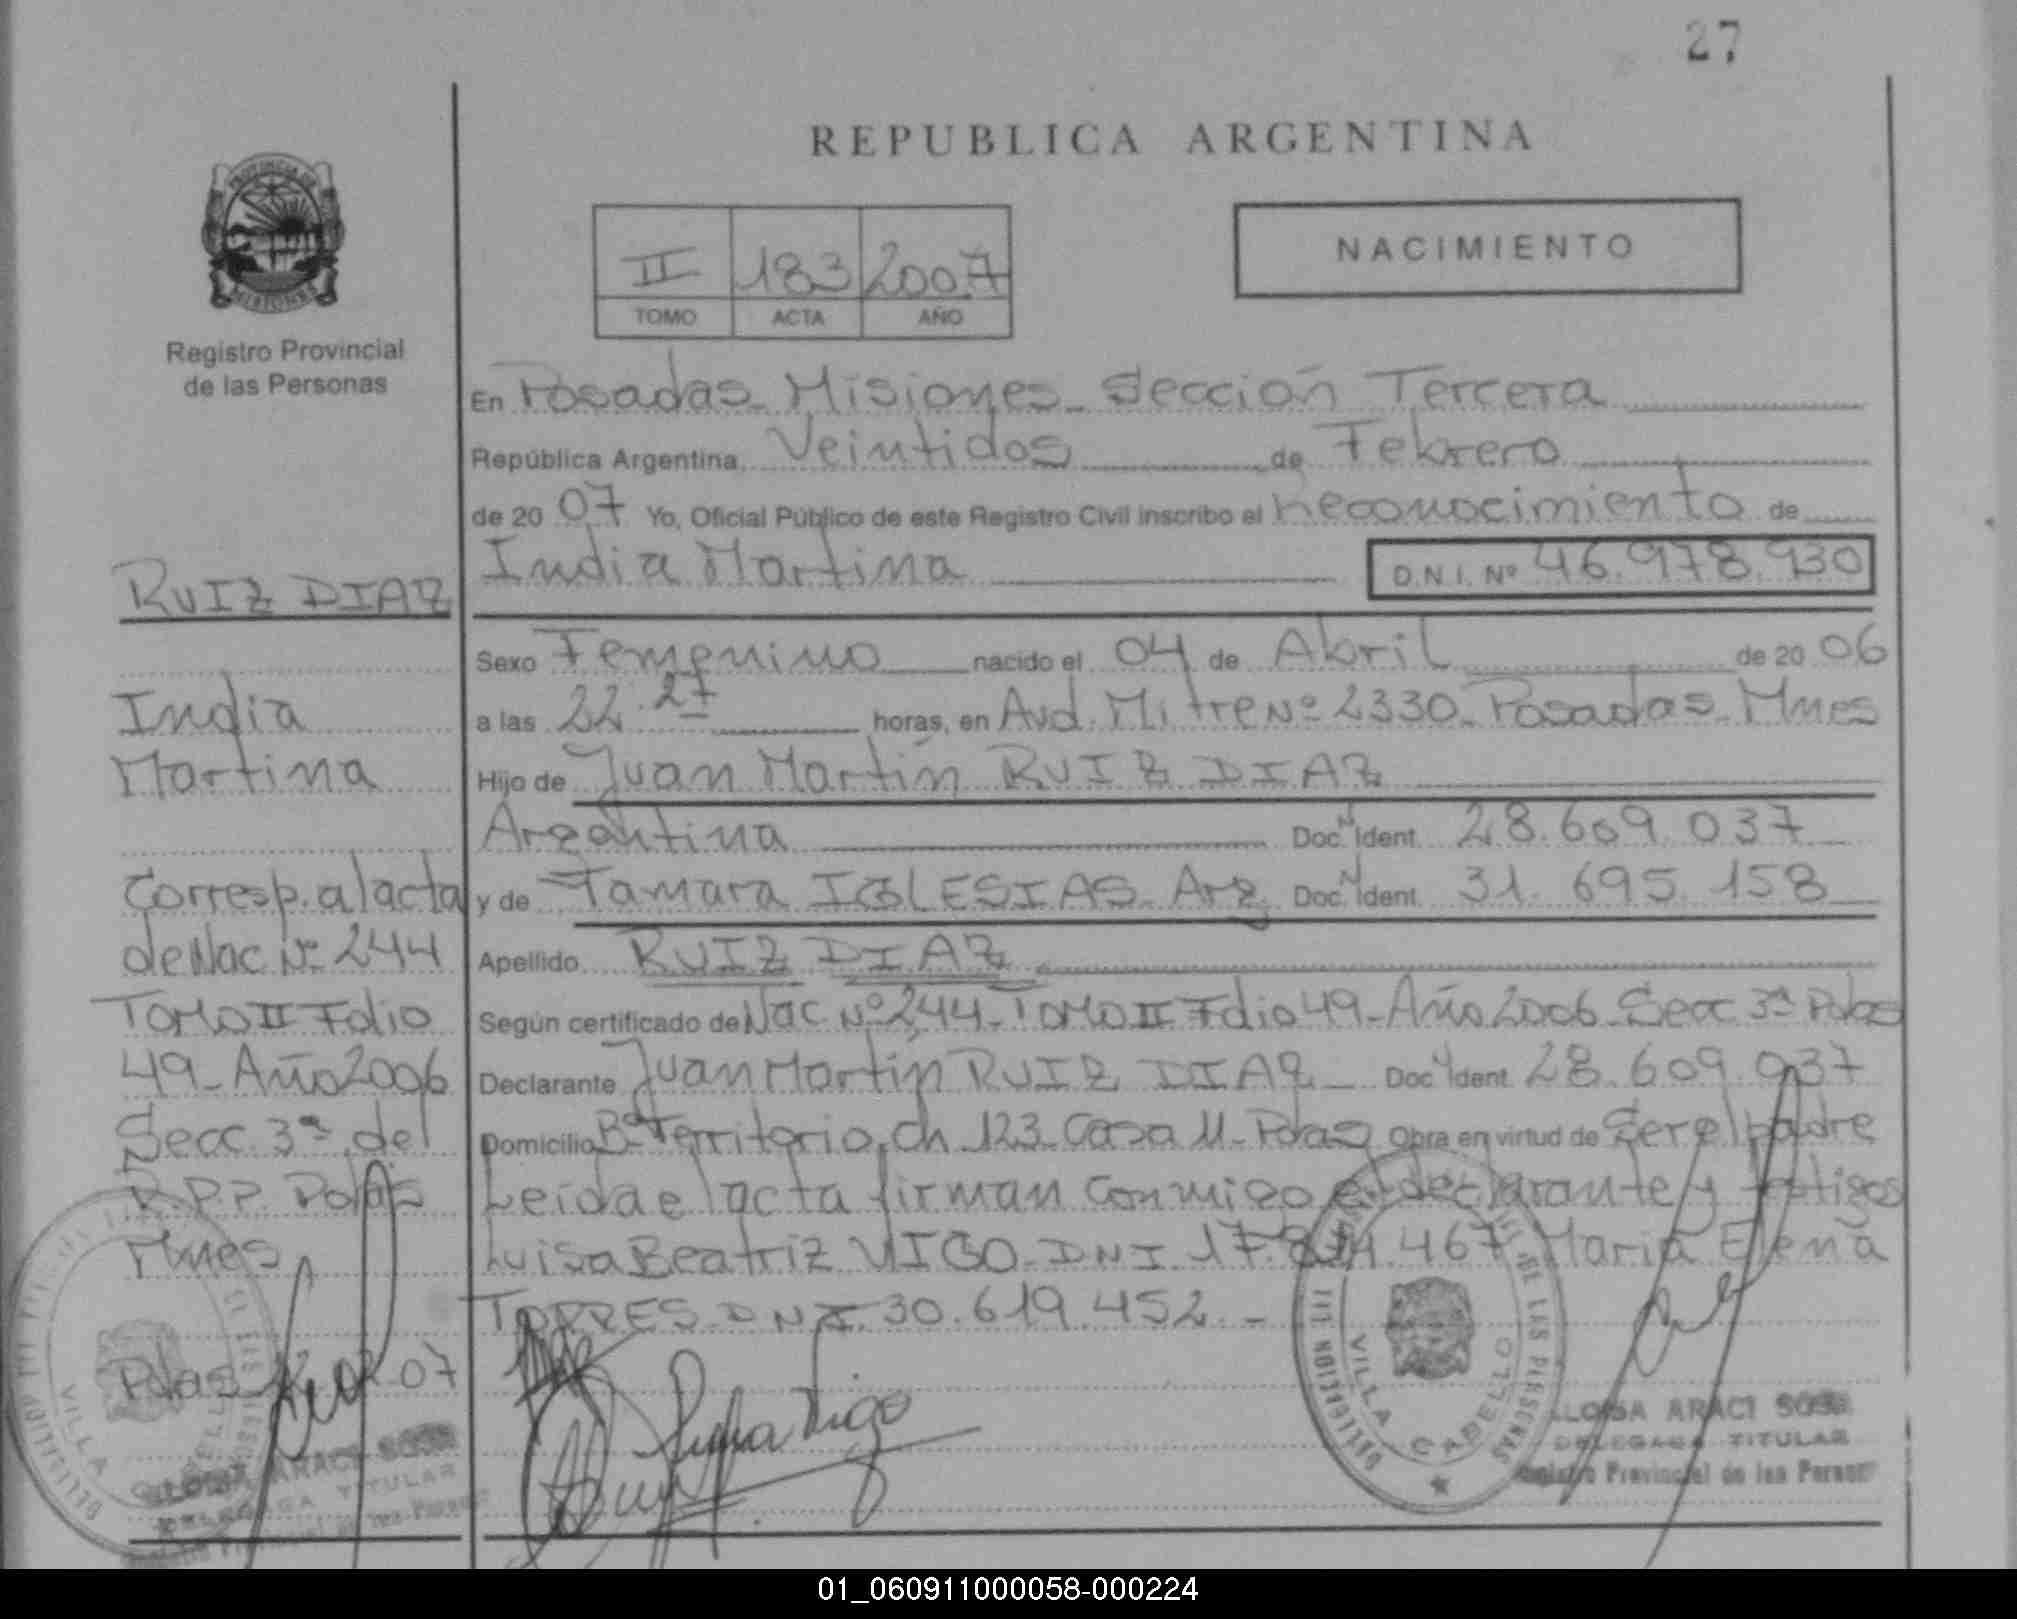 27
REPUBLICA ARGENTINA
PROVINCIA DE
MISIONES
Registro Provincial
de las Personas
II 183 2007
TOMO ACTA AÑO
NACIMIENTO
En Posadas Misiones Sección Tercera
República Argentina, Veintidos de Febrero
de 2007 Yo, Oficial Público de este Registro Civil inscribo el Reconocimiento de
India Martina D.N.I. Nº 46.978.930
Sexo Femenino nacido el 04 de Abril de 2006
a las 22.27 horas, en Avd. Mitre Nº 2330 Posadas Mnes
Hijo de Juan Martín RUIZ DIAZ
Argentina Doc. N Ident. 28.609.037
y de Tamara IGLESIAS Arg. Doc. N Ident. 31.695.158
Apellido RUIZ DIAZ
Según certificado de Nac Nº 244 - Tomo II Folio 49 - Año 2006 - Secc 3ª Pdas
Declarante Juan Martín RUIZ DIAZ Doc N Ident 28.609.037
Domicilio Bº Territorio, Ch 123 Casa 11 - Pdas Obra en virtud de Ser el padre
Leida el acta firman conmigo el declarante y testigos
Luisa Beatriz VIGO DNI 17. .467 Maria Elena
TORRES DNI 30.619.452 -
RUIZ DIAZ
India
Martina
Corresp. al acta
de Nac Nº 244
Tomo II Folio
49 - Año 2006
Secc. 3ª del
R.P.P. Pdas
Mnes
Pdas 07
DELEGACION III DE LAS PERSONAS
VILLA CABELLO
ARACI SOSA
DELEGADA TITULAR
Registro Provincial de las Personas
VILLA CABELLO
ARACI SOSA
DELEGADA TITULAR
01_060911000058-000224